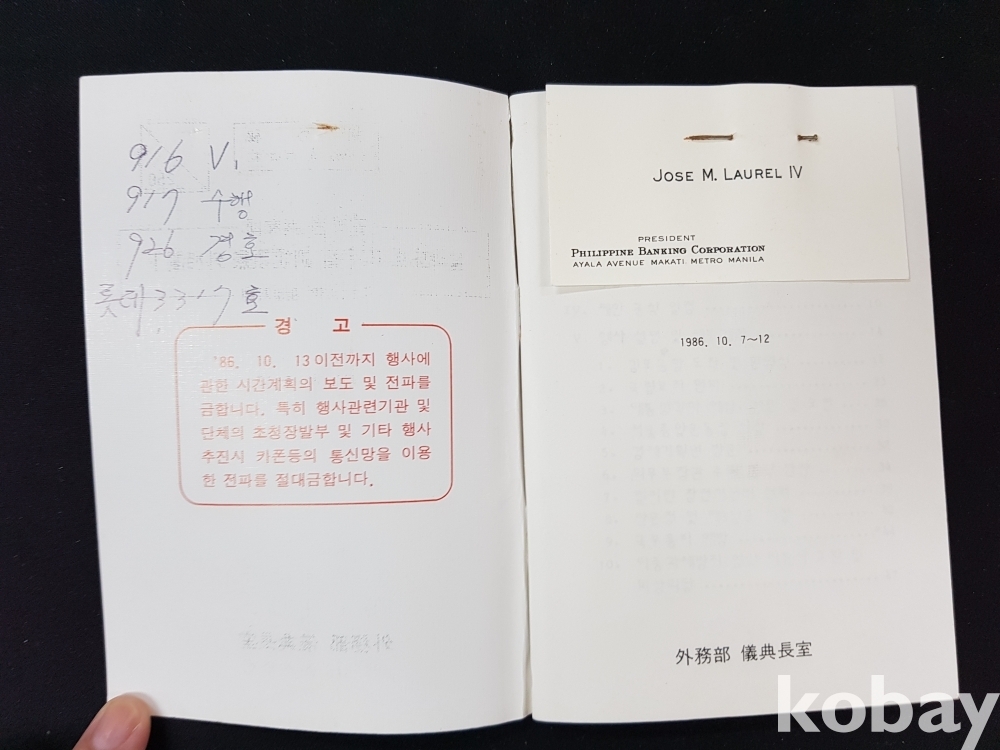 916 V.
917 수행
926 경호
롯데 3317호
경 고
'86. 10. 13이전까지 행사에
관한 시간계획의 보도 및 전파를
금합니다. 특히 행사관련기관 및
단체의 초청장발부 및 기타 행사
추진시 카폰등의 통신망을 이용
한 전파를 절대금합니다.
JOSE M. LAUREL IV
PRESIDENT
PHILIPPINE BANKING CORPORATION
AYALA AVENUE MAKATI, METRO MANILA
1986. 10. 7~12
外務部 儀典長室
kobay